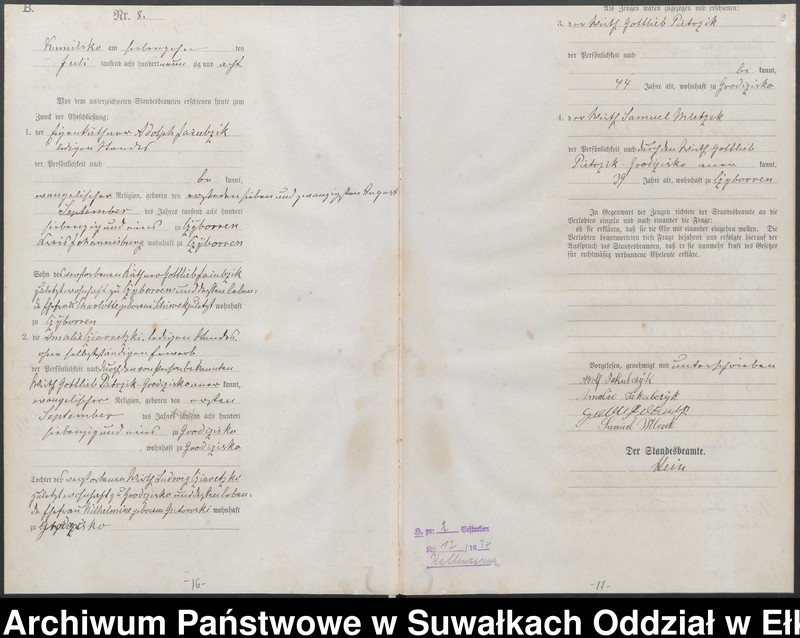 B.
Nr. 8.
Kumilsko am siebenzehn ten
Juli tausend acht hundert neun zig und acht
Vor dem unterzeichneten Standesbeamten erschienen heute zum
Zweck der Eheschließung:
1. der Eigenkäthner Adolph Jakubzik
ledigen Standes
der Persönlichkeit nach
be kannt,
evangelischer Religion, geboren den sieben und zwanzigsten August
September des Jahres tausend acht hundert
siebenzig und eins zu Czyborren
Kreis Johannisburg wohnhaft zu Czyborren
Sohn des verstorbenen Käthner Gottlieb Jakubzik
zuletzt wohnhaft zu Czyborren und dessen leben-
de Ehefrau Charlotte geborene zuletzt wohnhaft
zu Czyborren
2. die Amalie Czarnetzki, ledigen Standes,
ohne selbstständigen Erwerb
der Persönlichkeit nach durch den von Person bekannten
Wirth Gottlieb Pietrzik Grodzisko aner kannt,
evangelischer Religion, geboren den ersten
September des Jahres tausend acht hundert
siebenzig und eins zu Grodzisko
, wohnhaft zu Grodzisko
Tochter des verstorbenen Wirth Ludwig Czarnetzki
zuletzt wohnhaft zu Grodzisko und dessen leben-
de Ehefrau Wilhelmine geborenen Gutowski wohnhaft
zu Grodzisko
-16-
Als Zeugen waren zugezogen und erschienen:
9
3. der Wirth Gottlieb Pietrzik
der Persönlichkeit nach
be kannt,
44 Jahre alt, wohnhaft zu Grodzisko
4. der Wirth Samuel Mletzek
der Persönlichkeit nach durch den Wirth Gottlieb
Pietrzik-Grodzisko aner kannt,
39 Jahre alt, wohnhaft zu Czyborren
In Gegenwart der Zeugen richtete der Standesbeamte an die
Verlobten einzeln und nach einander die Frage:
ob sie erklären, daß sie die Ehe mit einander eingehen wollen. Die
Verlobten beantworteten diese Frage bejahend und erfolgte hierauf der
Ausspruch des Standesbeamten, daß er sie nunmehr kraft des Gesetzes
für rechtmäßig verbundene Eheleute erkläre.
Vorgelesen, genehmigt und unterschrieben
Adolf Jakubczyk
Amalie Jakubczyk
Samuel Mletzek
Der Standesbeamte.
Hein
H. zu: 2 Gestorben
Nr. 12 / 1938
-17-
Archiwum Państwowe w Suwałkach Oddział w Eł